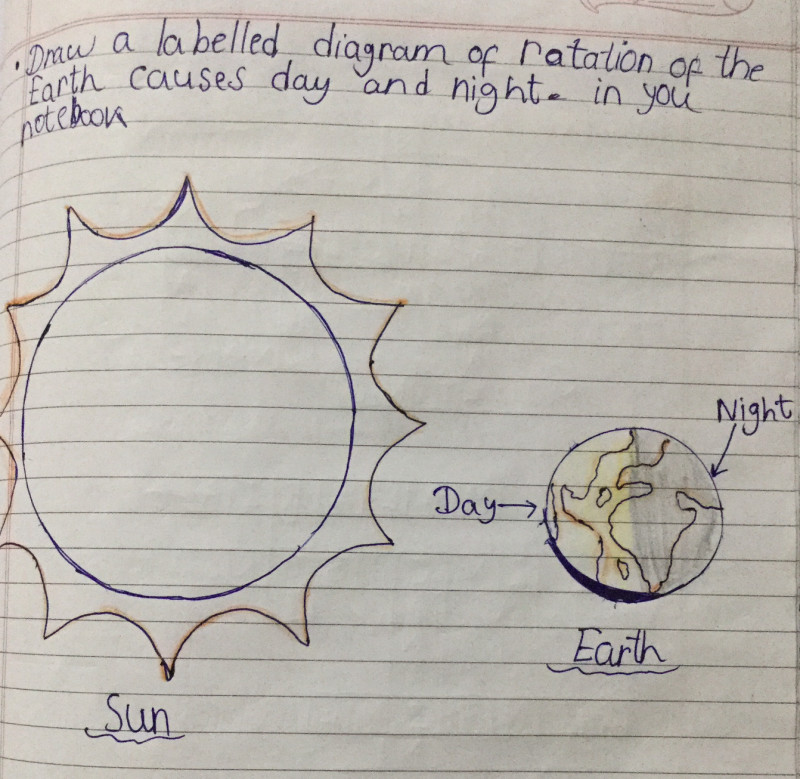 . Draw a labelled diagram of ratation of the
Earth causes day and night. in you
notebook
Night
Day
Earth
Sun